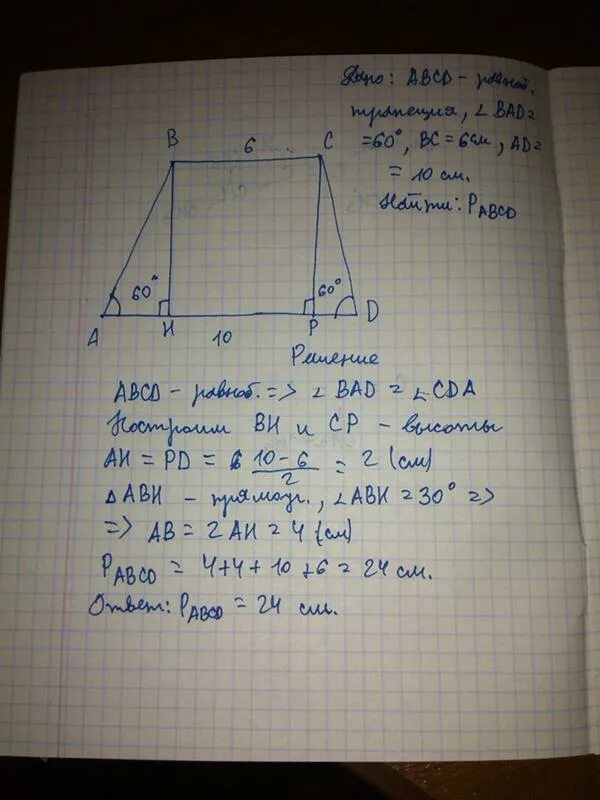 Дано: ABCD - равноб.
трапеция, ∠BAD =
= 60°, BC = 6 см, AD =
= 10 см.
Найти: P_ABCD
B 6 C
60° 60°
A H P D
10
Решение
ABCD - равноб. => ∠BAD = ∠CDA
Построим BH и CP - высоты
AH = PD = (10-6)/2 = 2 (см)
△ABH - прямоуг., ∠ABH = 30° =>
=> AB = 2AH = 4 (см)
P_ABCD = 4+4+10+6 = 24 см.
Ответ: P_ABCD = 24 см.